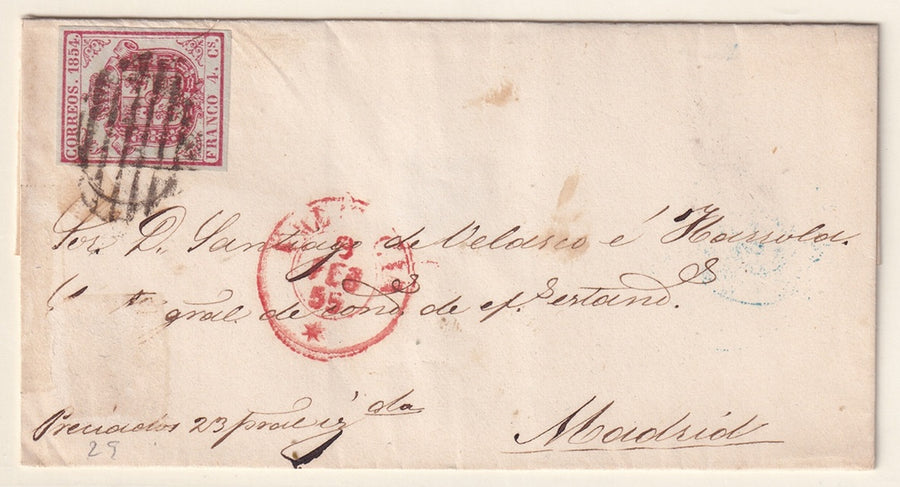 CORREOS. 1854.
FRANCO 4. Cs.
9
FEB
55
Sor. D. Santiago de Velasco é
gral. de de
Preciados 23 pral izqda
Madrid
29